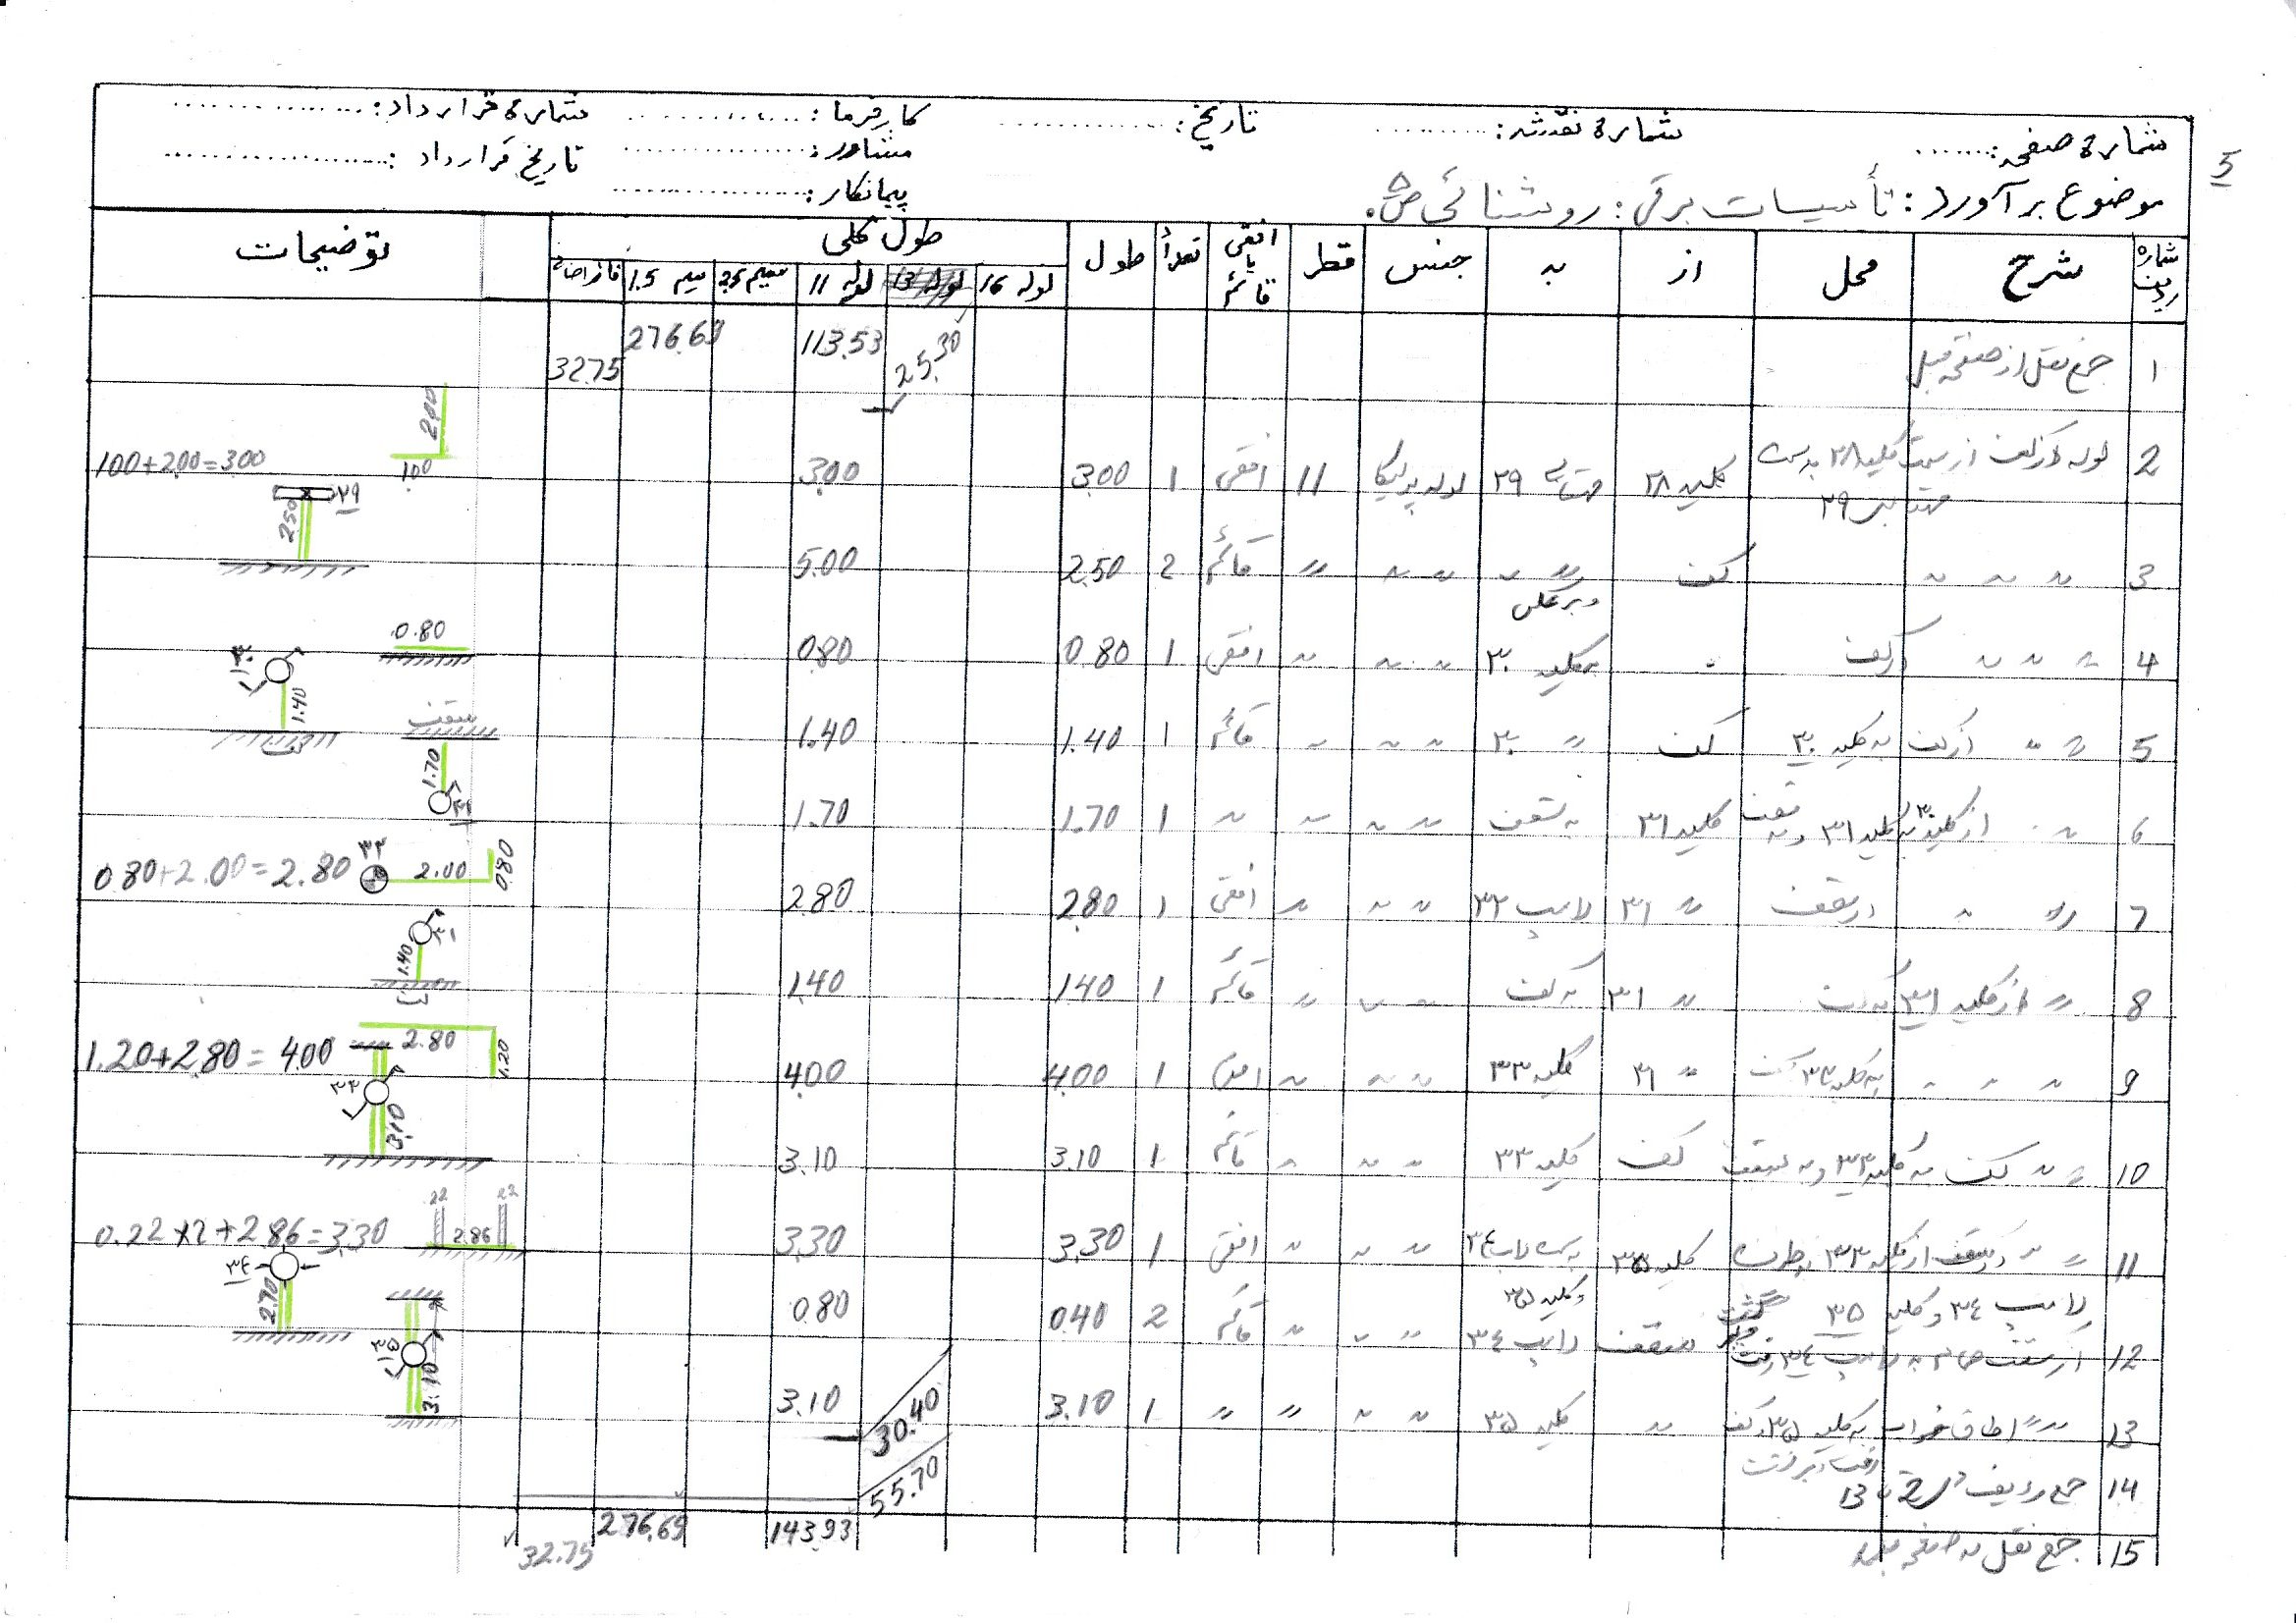 شماره صفحه: ........ شماره نقشه: ........ تاریخ: ........ کارفرما: ........ شماره قرارداد: ........
5
مشاور: ........ تاریخ قرارداد: ........
پیمانکار: ........
موضوع برآورد: تأسیسات برقی: روشنائی ص ۵
شماره ردیف شرح محل از به جنس قطر افقی یا قائم تعداد طول طول کلی توضیحات
لوله 16 لوله 13 لوله 11 سیم 2.5 سیم 1.5 فاز اضافه
1 جمع نقل از صفحه قبل 25.30 113.53 276.69 32.75
2 لوله در کف از سمت کلید ۲۸ به سمت مهتابی ۲۹ کلید ۲۸ مهتابی ۲۹ لوله پولیکا 11 افقی 1 3.00 3.00 100+2.00=300 2.00 1.00
3 " " " کف " " و برعکس " " " قائم 2 2.50 5.00 ۲۹ 2.50
4 " " " در کف " به کلید ۳۰ " " " افقی 1 0.80 0.80 0.80
5 " " از کف به کلید ۳۰ کف " ۳۰ " " " قائم 1 1.40 1.40 ۳۰ 1.40 کف
6 " از کلید ۳۰ به کلید ۳۱ و به سقف کلید ۳۱ به سقف " " " " 1 1.70 1.70 سقف 1.70 ۳۱
7 " " در سقف " ۳۱ لامپ ۳۲ " " " افقی 1 2.80 2.80 0.80+2.00=2.80 ۳۲ 2.00 0.80
8 " از کلید ۳۱ به کف " ۳۱ به کف " " " قائم 1 1.40 1.40 ۳۱ 1.40
9 " " " به کلید ۳۳ کف " ۳۱ کلید ۳۳ " " " افقی 1 4.00 4.00 1.20+2.80=4.00 2.80 1.20
10 " " کف به کلید ۳۳ و به سقف کف کلید ۳۳ " " " قائم 1 3.10 3.10 ۳۳ 3.10
11 " " در سقف از کلید ۳۳ به طرف لامپ ۳۴ و کلید ۳۵ کلید ۳۵ به سمت لامپ ۳۴ و کلید ۳۵ " " " افقی 1 3.30 3.30 0.22×2+2.86=3.30 22 22 2.86
12 از سقف حمام به لامپ ۳۴ رفت و برگشت سقف لامپ ۳۴ " " " قائم 2 0.40 0.80 ۳۴ 2.70
13 " " اطاق خواب به کلید ۳۵ و کف رفت و برگشت " کلید ۳۵ " " " " 1 3.10 3.10 30.40 ۳۵ 3.10
14 جمع ردیف 2 تا 13 55.70
15 جمع نقل به صفحه بعد 143.93 276.69 32.75